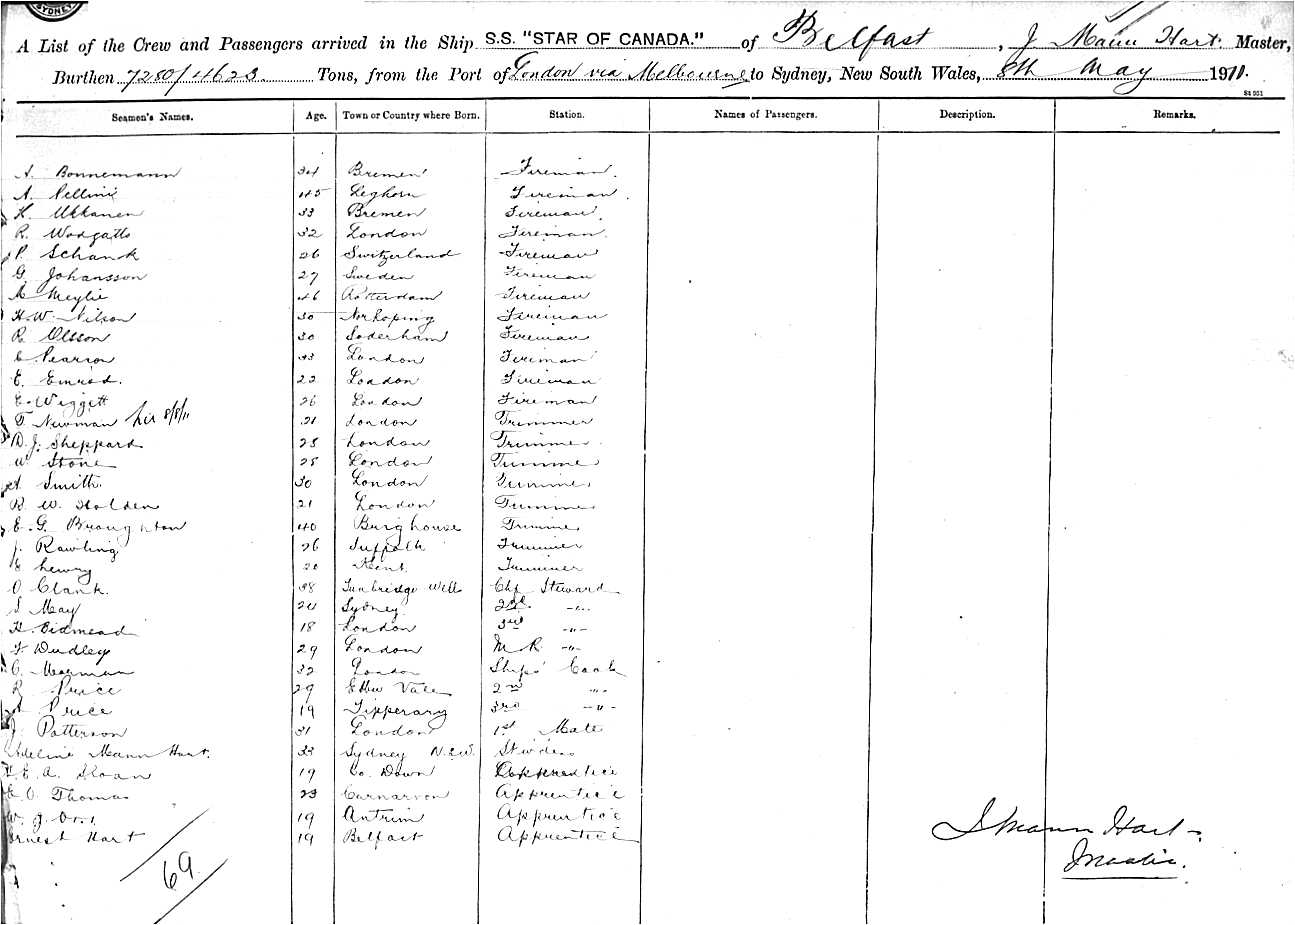 SYDNEY
A List of the Crew and Passengers arrived in the Ship S.S. "STAR OF CANADA." of Belfast, J Mann Hart Master,
Burthen 7280/4623 Tons, from the Port of London via Melbourne to Sydney, New South Wales, 8th May 1911.
Seamen's Names. Age. Town or Country where Born. Station. Names of Passengers. Description. Remarks.
A. Bonnemann 34 Bremen Fireman
A. Pellini 45 Leghorn Fireman
K. Ukkanen 33 Bremen Fireman
R. Wodgatts 32 London Fireman
P. Schank 26 Switzerland Fireman
G. Johansson 27 Sweden Fireman
A Meylie 46 Rotterdam Fireman
H.W. Nilson 30 Norkoping Fireman
R. Olsson 30 Soderham Fireman
C. Pearson 33 London Fireman
E. 22 London Fireman
E. Wiggett 26 London Fireman
T. Newman 8/5/11 21 London Trimmer
D. J. Sheppard 25 London Trimmer
W. Stone 28 London Trimmer
A. Smith 30 London Trimmer
B. W. Holden 21 London Trimmer
E. G. Broughton 40 Burghouse Trimmer
J. Rawling 26 Suffolk Trimmer
20 Kent Trimmer
O. Clark 38 Tunbridge Well Chf Steward
S May 20 Sydney 2nd -"-
H. Bidmead 18 London 3rd -"-
F. Dudley 29 London M R -"-
C. 32 London Ships' Cook
R Price 29 Ebbw Vale 2nd -"-
A Price 19 Tipperary 3rd -"-
J. Patterson 31 London 1st Mate
Adeline Mann Hart. 33 Sydney N.S.W. Stwdess
E. A. Sloan 19 Co. Down Apprentice
E. O. Thomas 23 Carnarvon Apprentice
W. J. Orr 19 Antrim Apprentice
Ernest Hart 19 Belfast Apprentice
J Mann Hart
Master.
69